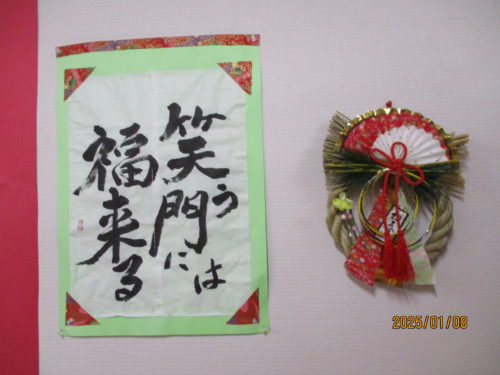 笑う門には
福来る
2025/01/09